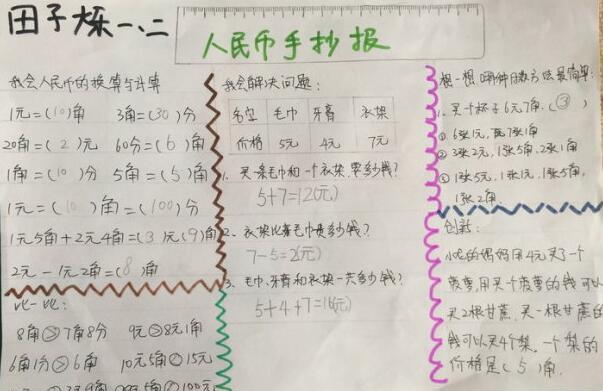 田子烁一、二
人民币手抄报
我会人民币的换算与计算
1元=(10)角 3角=(30)分
20角=(2)元 60分=(6)角
1角=(10)分 5角=(5)角
1元=(10)角=(100)分
1元5角+2元4角=(3)元(9)角
2元-1元2角=(8)角
比一比:
8角>7角8分 9元>8元1角
6角1分>6角 10元5角 15元
我会解决问题:
名称 毛巾 牙膏 衣架
价格 5元 4元 7元
1. 买一条毛巾和一个衣架,要多少钱?
5+7=12(元)
2. 衣架比毛巾贵多少钱?
7-5=2(元)
3. 毛巾、牙膏和衣架一共多少钱?
5+4+7=16(元)
想一想哪种付款方法最简单:
1. 买一个杯子6元7角.(③)
① 6张1元,7张1角
② 3张2元,1张5角,2张1角
③ 1张5元,1张1元,1张5角,
1张2角.
创新:
的妈妈用4元买了一个
菠萝,用买一个菠萝的钱可以
买2根甘蔗,买一根甘蔗的
钱可以买4个梨,一个梨的
价格是(5)角.